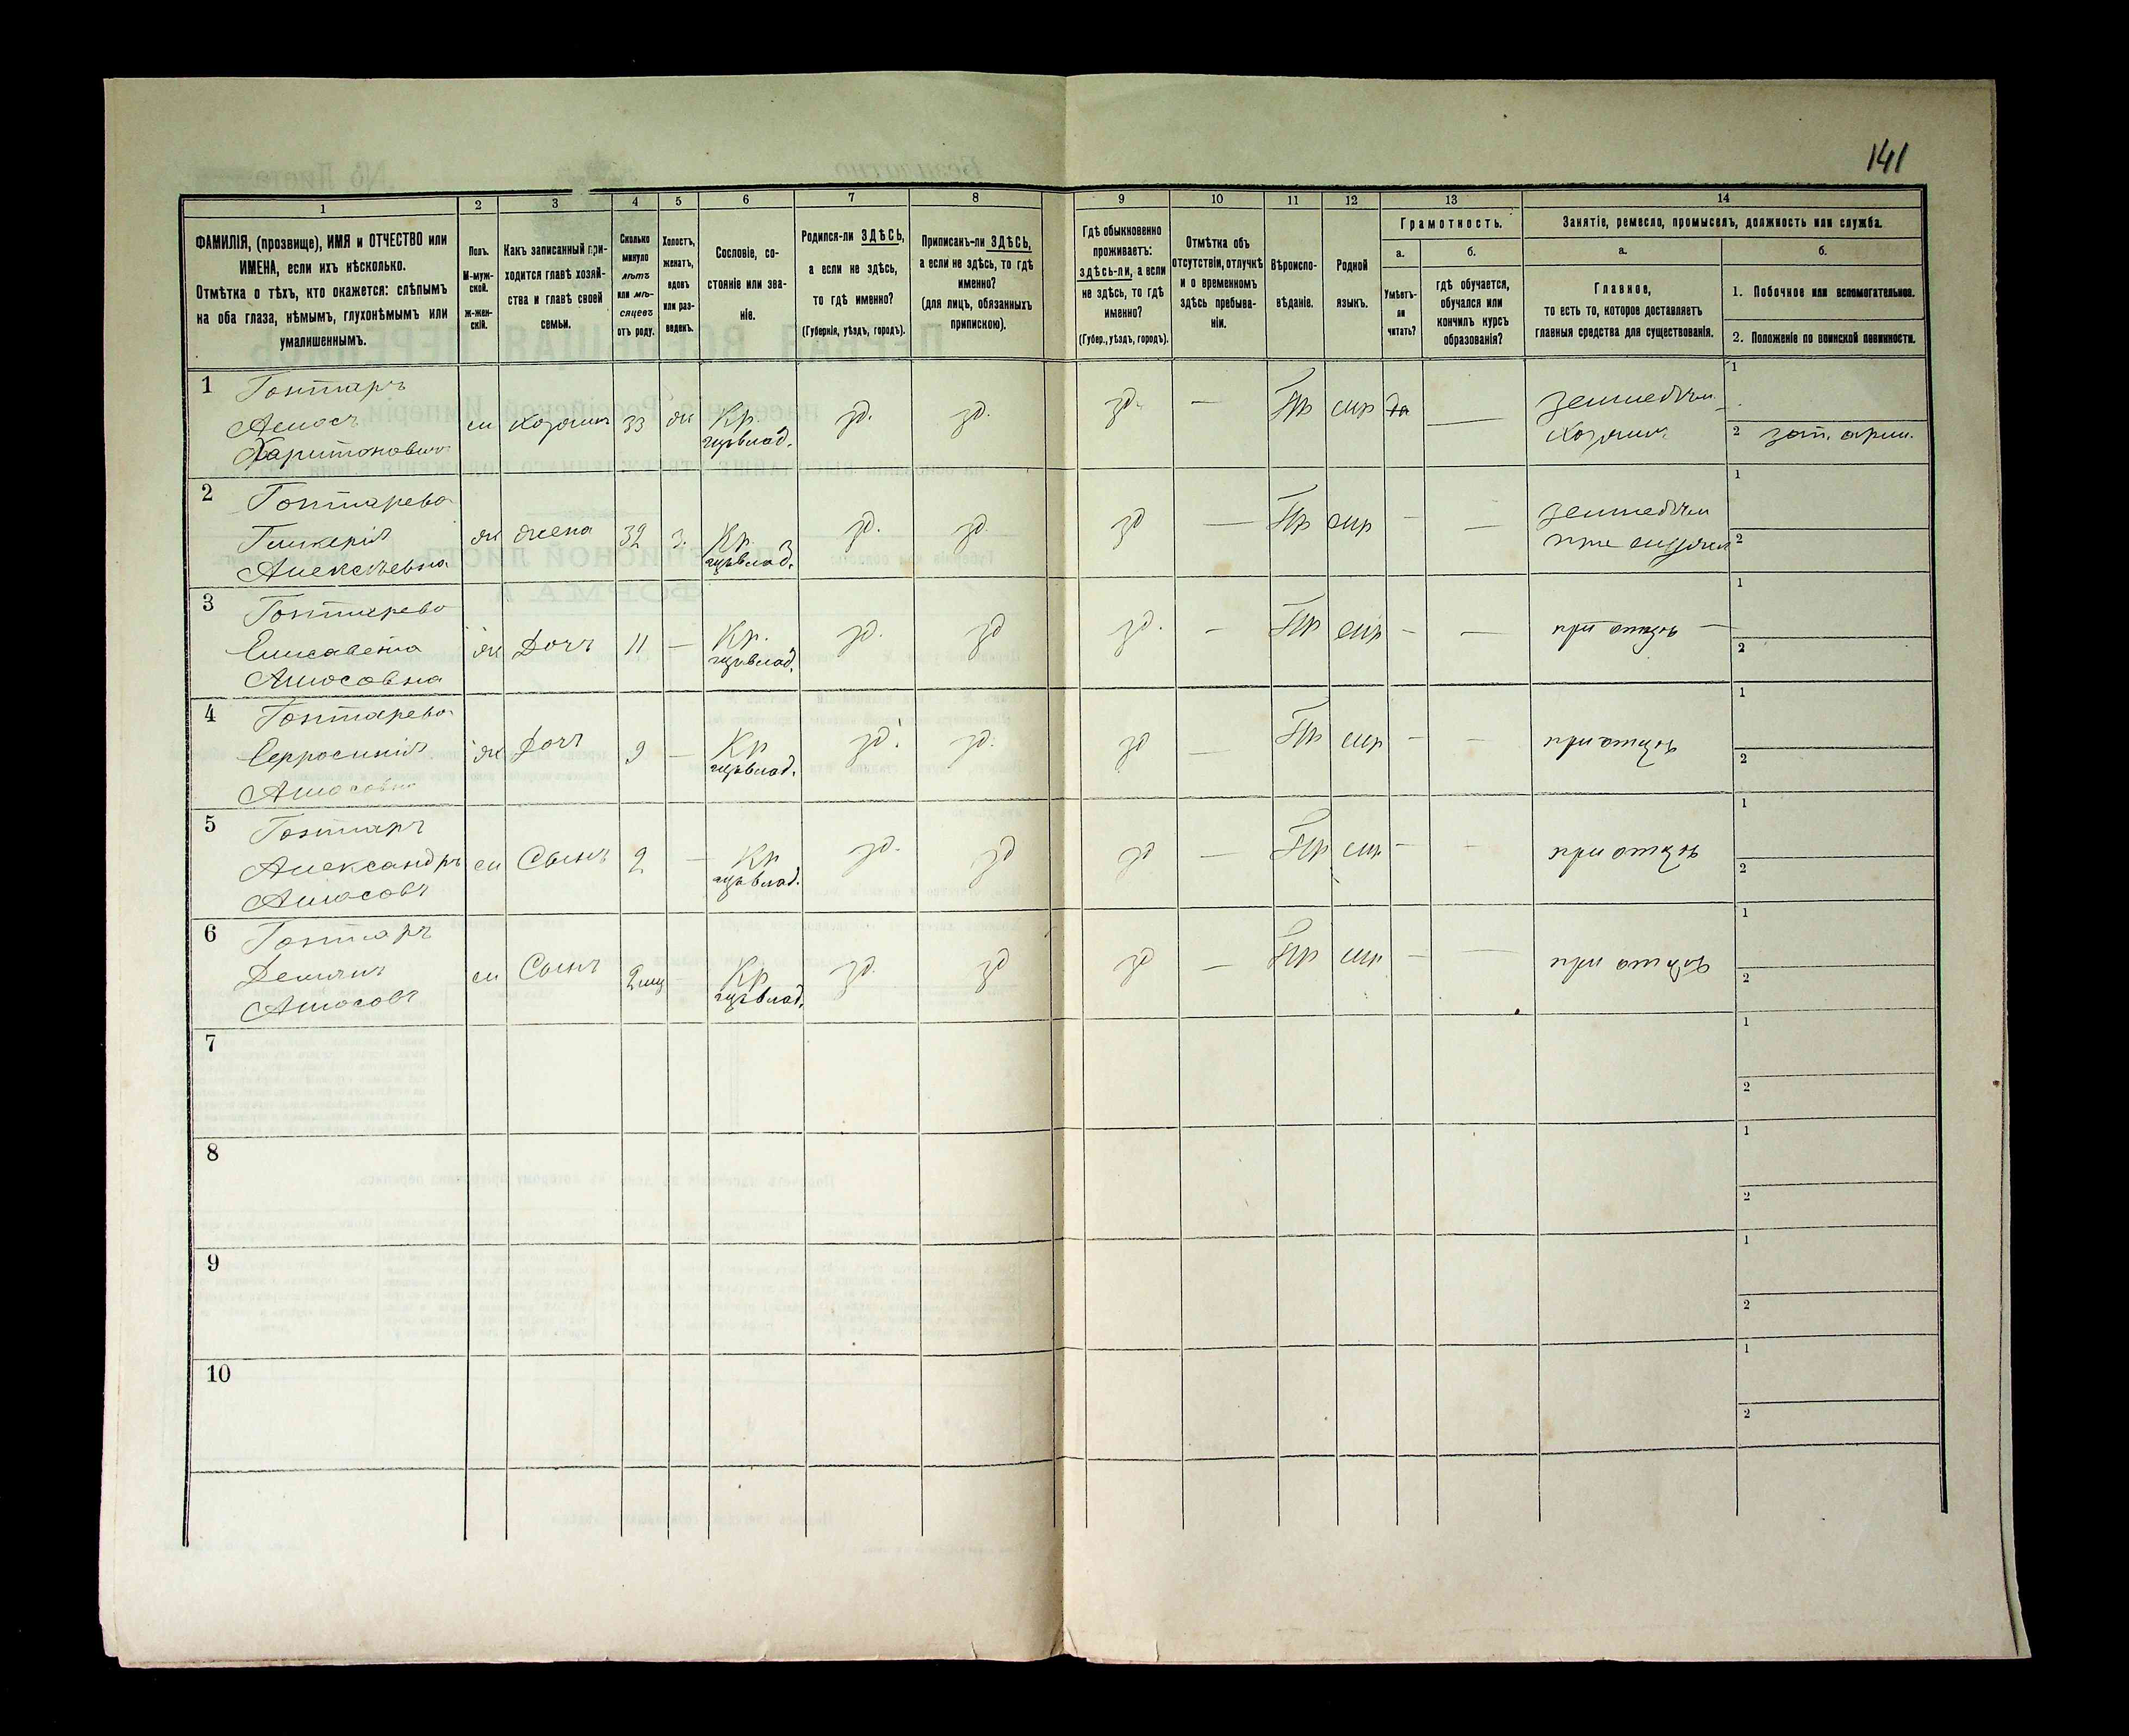 141
1
2
3
4
5
6
7
8
9
10
11
12
13
14
ФАМИЛІЯ, (прозвище), ИМЯ и ОТЧЕСТВО или
ИМЕНА, если ихъ нѣсколько.
Отмѣтка о тѣхъ, кто окажется: слѣпымъ
на оба глаза, нѣмымъ, глухонѣмымъ или
умалишеннымъ.
Полъ.
М-муж-
ской.
ж-жен-
скій.
Какъ записанный при-
ходится главѣ хозяй-
ства и главѣ своей
семьи.
Сколько
минуло
лѣтъ
или мѣ-
сяцевъ
отъ роду.
Холостъ,
женатъ,
вдовъ
или раз-
веденъ.
Сословіе, со-
стояніе или зва-
ніе.
Родился-ли ЗДѢСЬ,
а если не здѣсь,
то гдѣ именно?
(Губернія, уѣздъ, городъ).
Приписанъ-ли ЗДѢСЬ,
а если не здѣсь, то гдѣ
именно?
(для лицъ, обязанныхъ
припискою).
Гдѣ обыкновенно
проживаетъ:
здѣсь-ли, а если
не здѣсь, то гдѣ
именно?
(Губер., уѣздъ, городъ).
Отмѣтка объ
отсутствіи, отлучкѣ
и о временномъ
здѣсь пребыва-
ніи.
Вѣроиспо-
вѣданіе.
Родной
языкъ.
Грамотность.
а.
Умѣетъ-
ли
читать?
б.
гдѣ обучается,
обучался или
кончилъ курсъ
образованія?
Занятіе, ремесло, промыселъ, должность или служба.
а.
Главное,
то есть то, которое доставляетъ
главныя средства для существованія.
б.
1. Побочное или вспомогательное.
2. Положеніе по воинской повинности.
1
Гонтарь
Амосъ
Харитоновичъ
м
хозяинъ
33
ж
Кр.
зд.
зд.
зд.
—
Пр
мр
да
—
земледѣл.
хозяинъ
1
2
2
Гонтарева
Гликерія
Алексѣевна
ж
жена
32
з.
Кр.
зд.
зд.
зд
—
Пр
мр
—
—
земледѣл
1
2
3
Гонтарева
Елисавета
Амосовна
ж
Дочь
11
—
Кр.
зд.
зд
зд.
—
Пр
мр
—
—
при отцѣ —
1
2
4
Гонтарева
Ефросинія
Амосовна
ж
Дочь
9
—
Кр
зд.
зд.
зд
—
Пр
мр
—
—
при отцѣ
1
2
5
Гонтарь
Александръ
Амосовъ
м
Сынъ
2
—
Кр
зд.
зд
зд
—
Пр
мр
—
—
при отцѣ
1
2
6
Гонтарь
Демьянъ
Амосовъ
м
Сынъ
2 мц
—
Кр
зд.
зд
зд
—
Пр
мр
—
—
при отцѣ
1
2
7
1
2
8
1
2
9
1
2
10
1
2